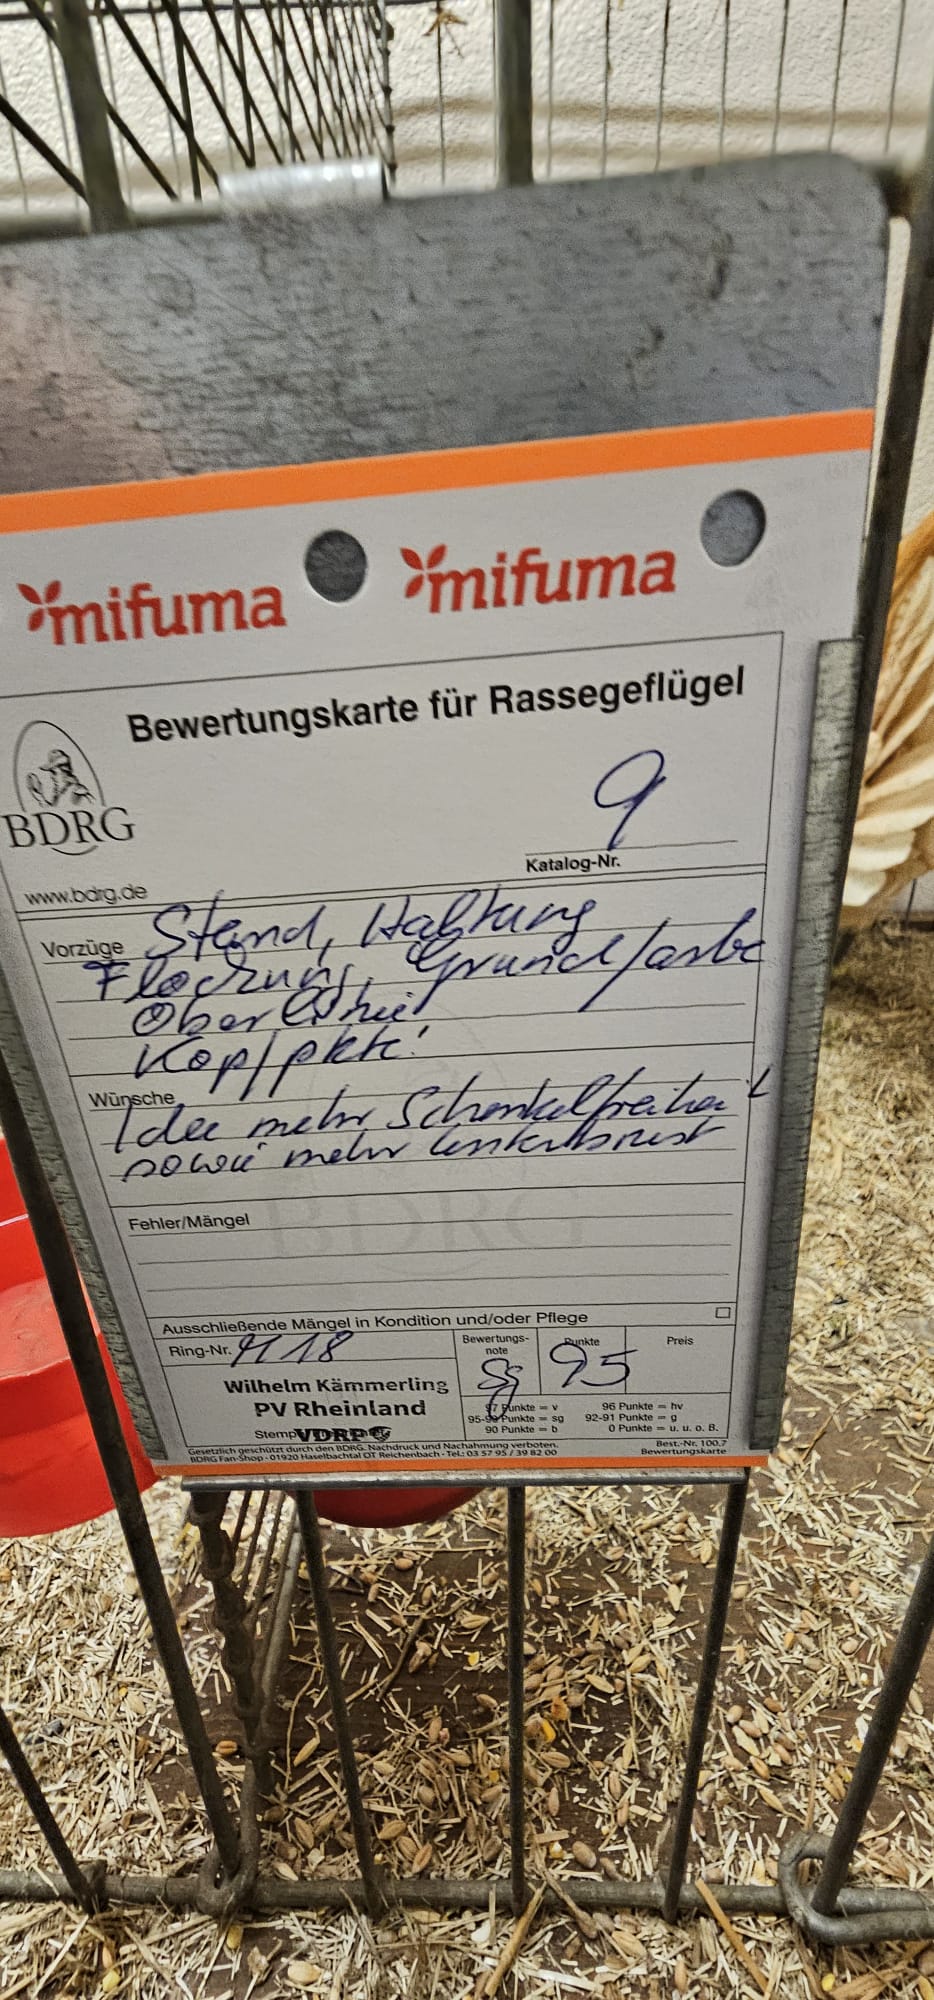 mifuma mifuma
Bewertungskarte für Rassegeflügel
BDRG
9
Katalog-Nr.
www.bdrg.de
Vorzüge Stand, Haltung
Flockung, Grundfarbe
Ober
Kopfpkte!
Wünsche
Idee mehr Schenkelfreiheit
sowie mehr Unterbrust
BDRG
Fehler/Mängel
Ausschließende Mängel in Kondition und/oder Pflege
Ring-Nr. 18
Bewertungs-
note
Sg
Punkte
95
Preis
Wilhelm Kämmerling
PV Rheinland
VDRP
97 Punkte = v 96 Punkte = hv
95-93 Punkte = sg 92-91 Punkte = g
90 Punkte = b 0 Punkte = u. u. o. B.
Gesetzlich geschützt durch den BDRG. Nachdruck und Nachahmung verboten.
BDRG Fan-Shop · 01920 Haselbachtal OT Reichenbach · Tel.: 03 57 95 / 39 82 00
Best.-Nr. 100.7
Bewertungskarte